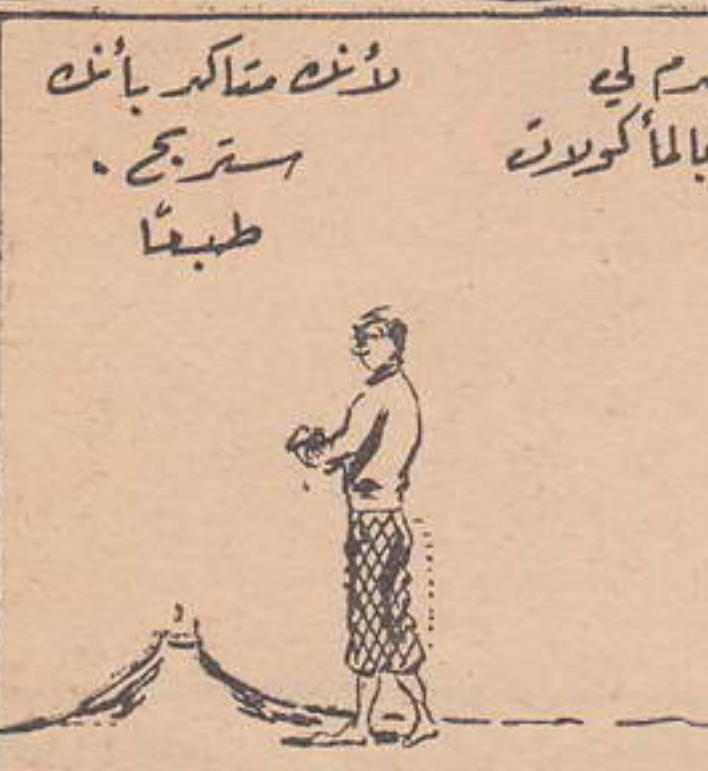 لي
بالمأكولات
لأنك متاكد بأنك
ستربح .
طبعًا